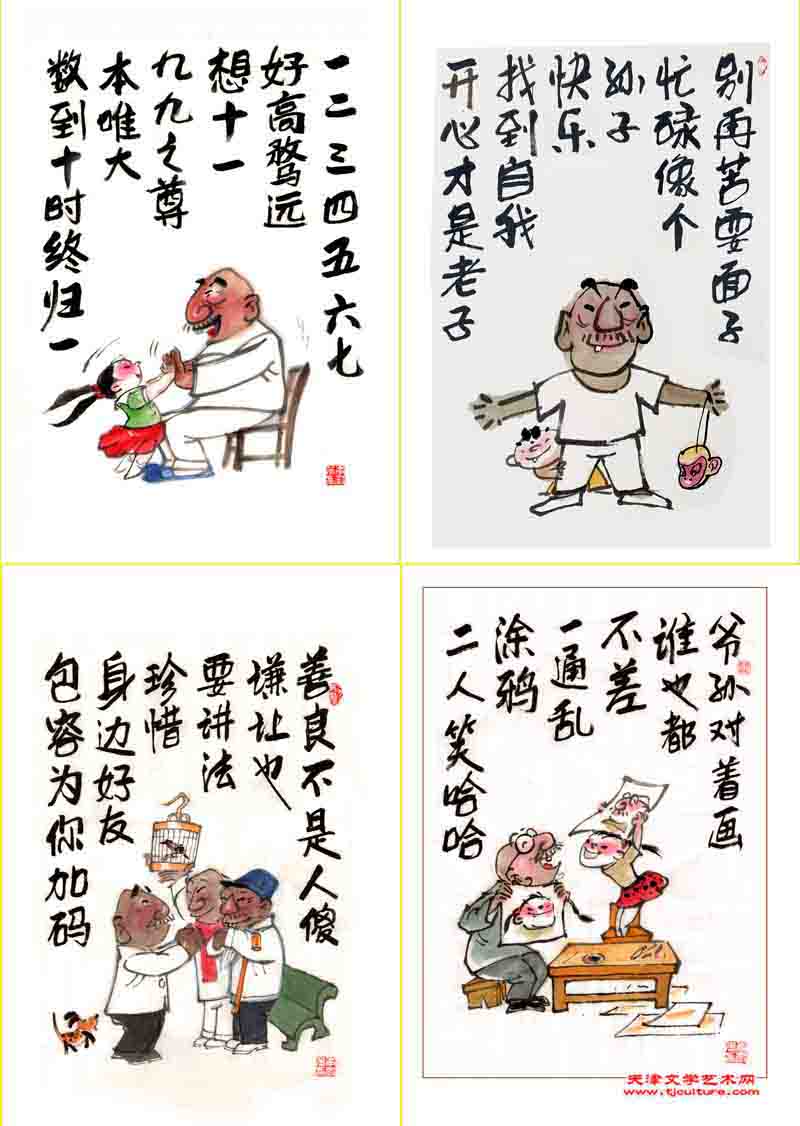 一二三四五六七
好高骛远
想十一
九九之尊
本唯大
数到十时终归一
别再苦要面子
忙碌像个
孙子
快乐
找到自我
开心才是老子
善良不是人傻
谦让也
要讲法
珍惜
身边好友
包容为你加码
爷孙对着画
谁也都
不差
一通乱
涂鸦
二人笑哈哈
天津文学艺术网
www.tjculture.com